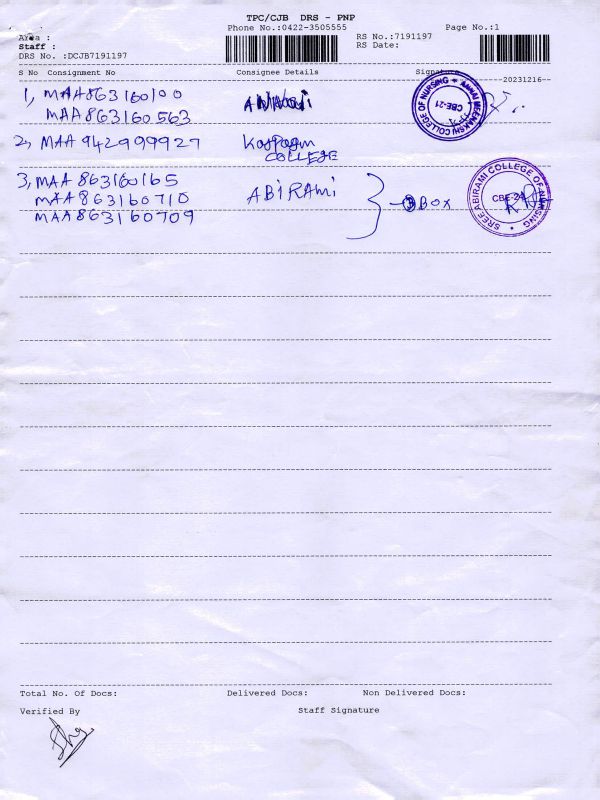 TPC/CJB DRS - PNP
Phone No.:0422-3505555
Page No.:1
Area :
RS No.:7191197
Staff :
RS Date:
DRS No. :DCJB7191197
S No Consignment No Consignee Details Signature
20231216
1, MAA863160100
MAA863160563
ANNAI MEENAKSHI COLLEGE OF NURSING
CBE-21
2, MAA 942999927 Karpagam
COLLEGE
3, MAA 863160165 ABIRAMI
MAA 863160710 3 BOX
MAA863160709
SREE ABIRAMI COLLEGE OF NURSING
CBE-24
Total No. Of Docs: Delivered Docs: Non Delivered Docs:
Verified By Staff Signature